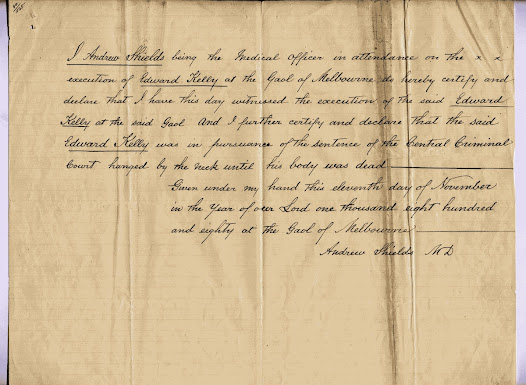 I Andrew Shields being the Medical Officer in attendance on the x x
execution of Edward Kelly at the Gaol of Melbourne do hereby certify and
declare that I have this day witnessed the execution of the said Edward
Kelly at the said Gaol And I further certify and declare that the said
Edward Kelly was in pursuance of the sentence of the Central Criminal
Court hanged by the neck until his body was dead
Given under my hand this eleventh day of November
in the Year of our Lord one thousand eight hundred
and eighty at the Gaol of Melbourne
Andrew Shields M D